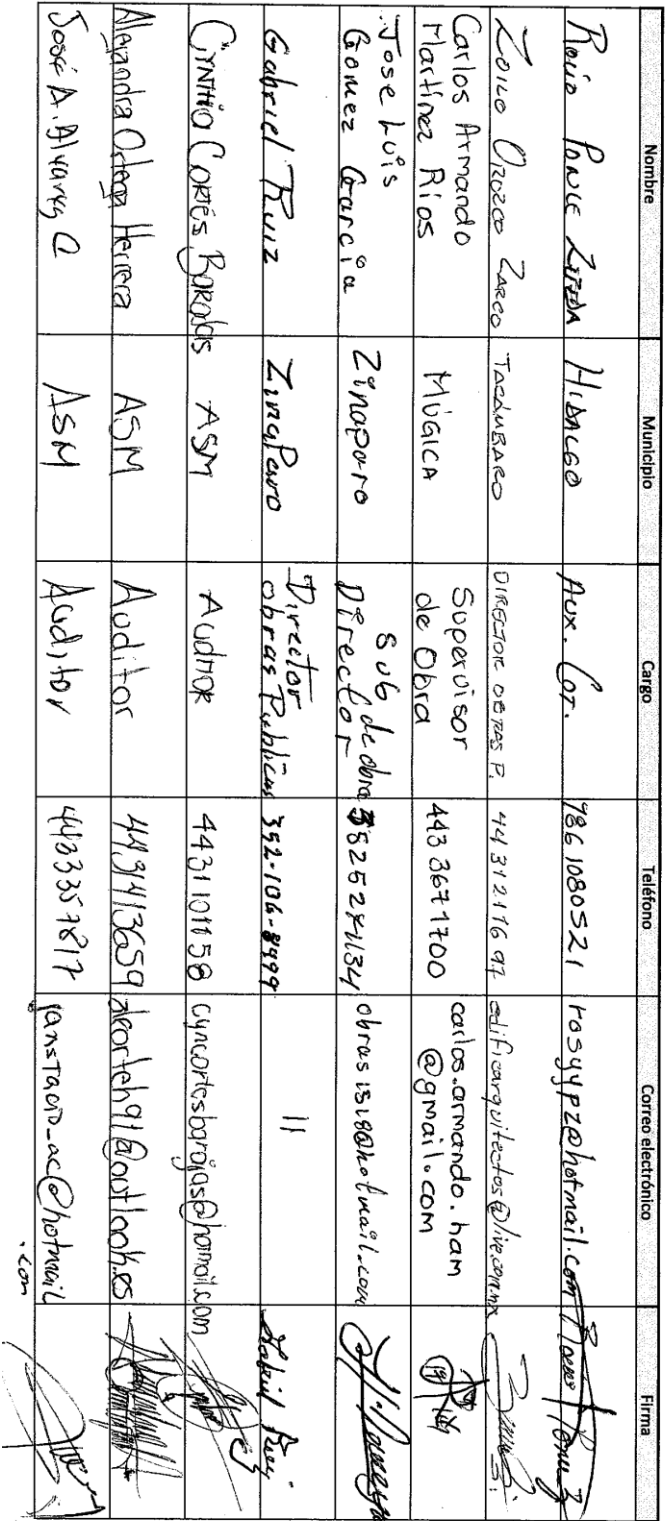 Nombre Municipio Cargo Teléfono Correo electrónico Firma
Rocío Ponce Zepeda HIDALGO Aux. Cot. 786 1080521 rosyypz@hotmail.com
ZOILO OROZCO ZARCO TACÁMBARO DIRECTOR OBRAS P. 44 312 11 6 97 edificarquitectos@live.com.mx
Carlos Armando
Martínez Ríos MúGICA Supervisor
de Obra 443 3671700 carlos.armando.ham
@gmail.com
Jose Luis
Gomez Garcia Zinaparo Sub
Director de obra 3525284134 obras1518@hotmail.com
Gabriel Ruiz Zinaparo Director
obras Publicas 352-106-8499 11 Gabriel Ruiz.
CYNTHIA CORTÉS BARAJAS ASM AUDITOR 4431101158 cyncortesbarajas@hotmail.com
Alejandra Ortega Herrera ASM Auditor 4431413659 aleorteh91@outlook.es
José A. Alvarez C ASM Auditor 4433357817 @hotmail
.com